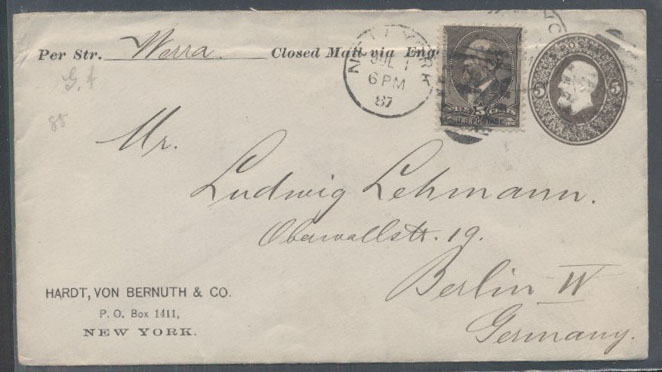 Per Str. Werra. Closed Mail via Eng
NEW YORK
JUL 1
6 PM
87
U.S. POSTAGE
5 5
G. A
85
Mr.
Ludwig Lehmann.
Oberwallstr. 19.
Berlin W
Germany.
HARDT, VON BERNUTH & CO.
P. O. Box 1411,
NEW YORK.